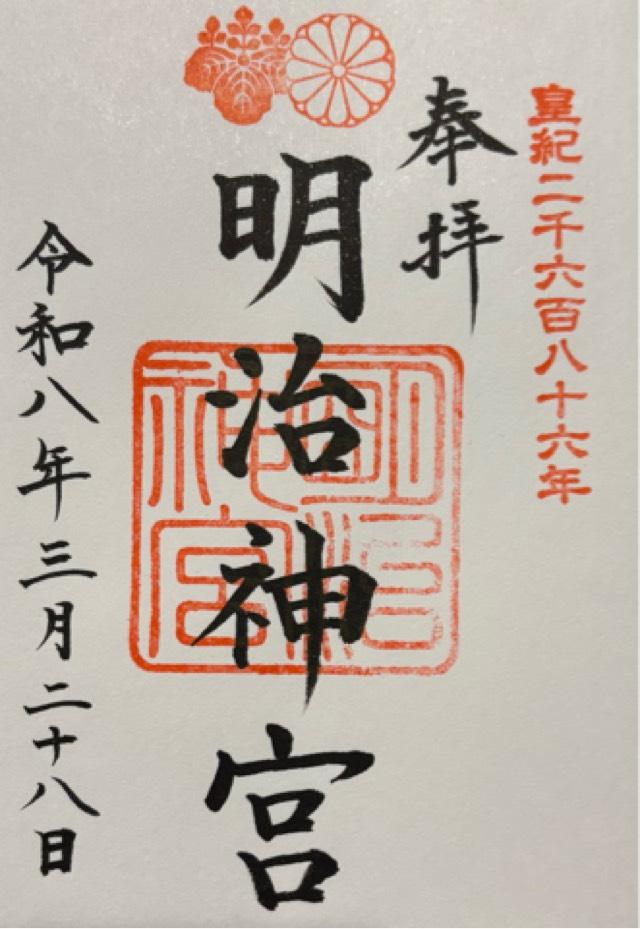 皇紀二千六百八十六年
奉拝
明治神宮
明治神宮
令和八年三月二十八日